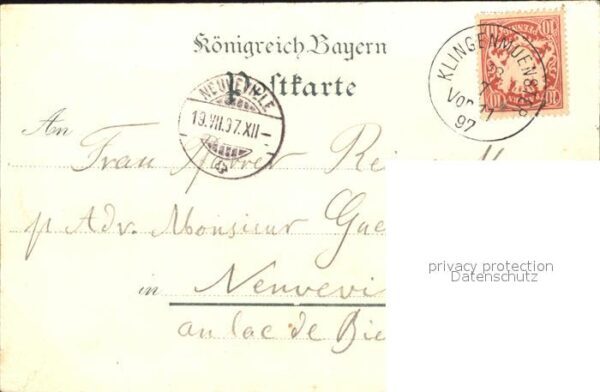 Königreich Bayern
Postkarte
KLINGENMUENSTER
7
Vor 11
97
10 PFENNIG 10
NEUVEVILLE
19.VII.97.XII
An
Frau Pfarrer
p Adv. Monsieur
in Neuvevi
au lac de Bie
privacy protection
Datenschutz